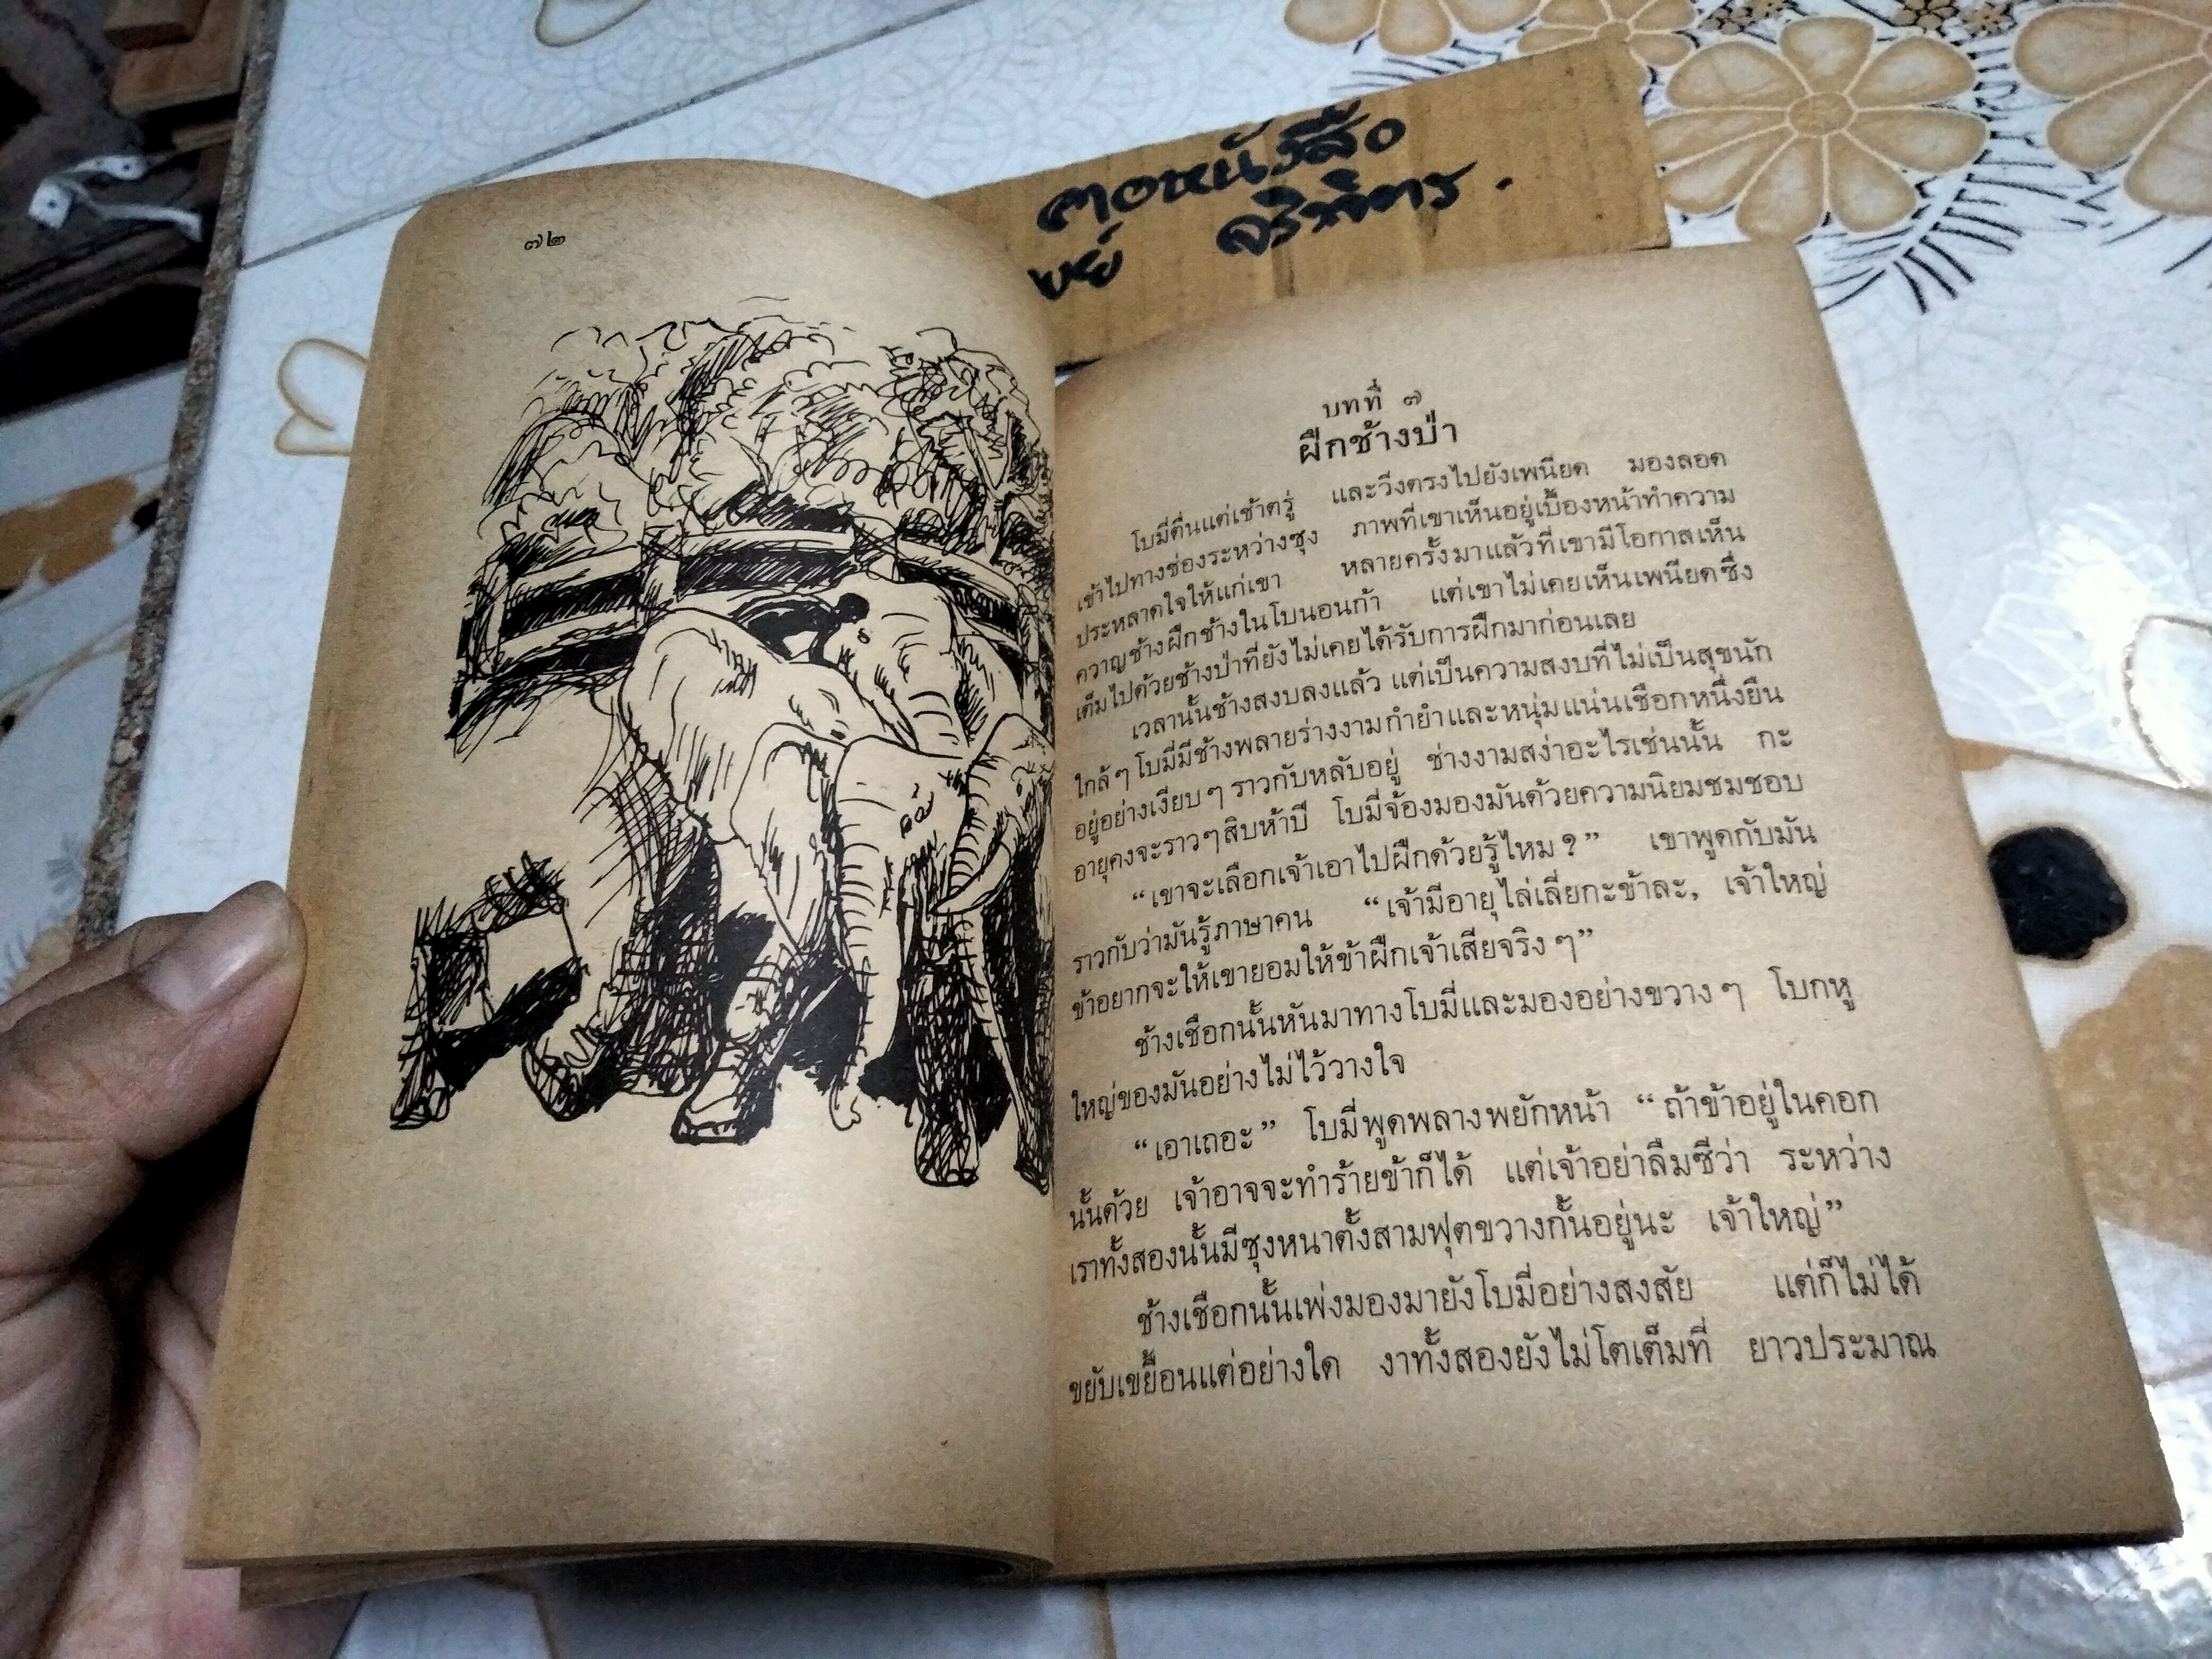 ๗๒
หนังสือ
บทที่ ๗
ฝึกช้างป่า
โบมี่ตื่นแต่เช้าตรู่ และวิ่งตรงไปยังเพนียด มองลอด
เข้าไปทางช่องระหว่างซุง ภาพที่เขาเห็นอยู่เบื้องหน้าทำความ
ประหลาดใจให้แก่เขา หลายครั้งมาแล้วที่เขามีโอกาสเห็น
ควาญช้างฝึกช้างในโบนอนก้า แต่เขาไม่เคยเห็นเพนียดซึ่ง
เต็มไปด้วยช้างป่าที่ยังไม่เคยได้รับการฝึกมาก่อนเลย
เวลานั้นช้างสงบลงแล้ว แต่เป็นความสงบที่ไม่เป็นสุขนัก
ใกล้ๆ โบมี่มีช้างพลายร่างงามกำยำและหนุ่มแน่นเชือกหนึ่งยืน
อยู่อย่างเงียบๆ ราวกับหลับอยู่ ช่างงามสง่าอะไรเช่นนั้น กะ
อายุคงจะราวๆ สิบห้าปี โบมี่จ้องมองมันด้วยความนิยมชมชอบ
“เขาจะเลือกเจ้าเอาไปฝึกด้วยรู้ไหม ?” เขาพูดกับมัน
ราวกับว่ามันรู้ภาษาคน “เจ้ามีอายุไล่เลี่ยกะข้าละ, เจ้าใหญ่
ข้าอยากจะให้เขายอมให้ข้าฝึกเจ้าเสียจริงๆ”
ช้างเชือกนั้นหันมาทางโบมี่และมองอย่างขวางๆ โบกหู
ใหญ่ของมันอย่างไม่ไว้วางใจ
“เอาเถอะ” โบมี่พูดพลางพยักหน้า “ถ้าข้าอยู่ในคอก
นั้นด้วย เจ้าอาจจะทำร้ายข้าก็ได้ แต่เจ้าอย่าลืมซีว่า ระหว่าง
เราทั้งสองนั้นมีซุงหนาตั้งสามฟุตขวางกั้นอยู่นะ เจ้าใหญ่”
ช้างเชือกนั้นเพ่งมองมายังโบมี่อย่างสงสัย แต่ก็ไม่ได้
ขยับเขยื้อนแต่อย่างใด งาทั้งสองยังไม่โตเต็มที่ ยาวประมาณ